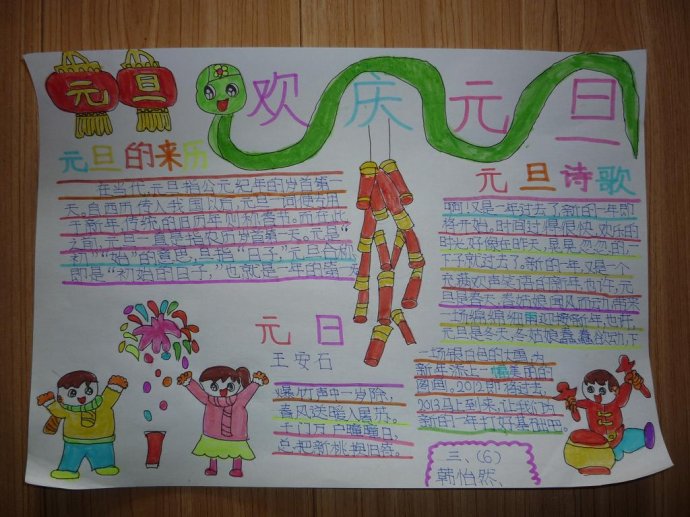 元旦
欢庆元旦
元旦的来历
在当代,元旦指公元纪年的岁首第一
天。自西历传入我国以后,元旦一词便专用
于新年,传统的旧历年则称春节。而在此
之前,元旦一直是指农历岁首第一天。元是“
初”“始”的意思,旦指“日子”元旦合称
即是“初始的日子”,也就是一年的第一天
元旦诗歌
啊!又是一年过去了新的一年即
将开始。时间过得很快,欢乐的
时长好像在昨天,是是忽忽的,一
下子就过去了。新的一年,又是一个
充满欢声笑语的新年,也许,元
旦是春天,春姑娘闻风而动,带来
一场绵绵细雨迎接新年,也许,
元旦是冬天,冬姑娘蠢蠢欲动,下
一场银白色的大雪,为
新年添上一幅美丽的
画面。2012即将过去,
2013马上到来,让我们为
新的一年打好基础吧。
元日
王安石
爆竹声中一岁除,
春风送暖入屠苏。
千门万户曈曈日,
总把新桃换旧符。
三、(6)
韩怡然、